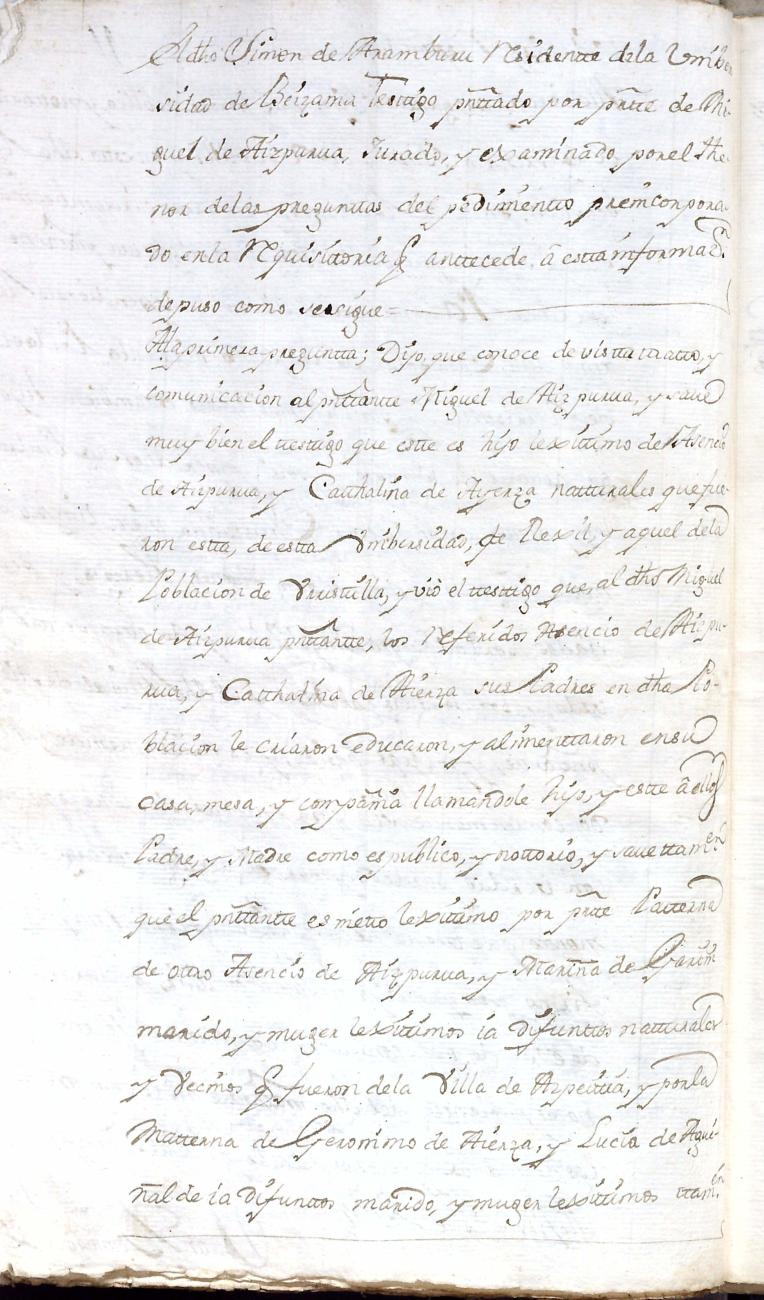 El dho Simon de Aramburu Residentte dela Vniber
sidad de Beizama Testtigo pnttado por partte de Mi-
guel de Aizpurua, Jurado, y examinado, por el the-
nor delas preguntas del pedimientto preincorpora-
do en la Requisittoria q anttecede â estta informaon.
depuso como se sigue =
Ala primera preguntta; Dijo, que conoce de vistta ttratto, y
comunicacion al pnttantte Miguel de Aizpurua, y save
muy bien el ttesttigo que estte es hijo lexittimo de Asencio
de Aizpurua, y Catthalina de Ayerza natturales que fue-
ron estta, de estta Vnibersidad, de Rexil, y aquel dela
Poblacion de Vrristtilla, y viò el ttesttigo que, al dho Miguel
de Aizpurua pnttantte, los Referidos Asencio de Aizpu-
rua, y Catthalina de Aierza sus Padres en dha Po-
blacion le criaron educaron, y alimenttaron en su
casa, mesa, y compañia llamandole hijo, y estte â ellos
Padre, y Madre como es publico, y nottorio, y save ttamen
que el pnttantte es nietto lexittimo por partte Patterna
de ottro Asencio de Aizpurua, y Marina de Garin
marido, y muger lexittimos ia difunttos natturales
y vecinos q fueron dela Villa de Azpeittia, y por la
Matterna de Geronimo de Aierza, y Lucia de Agui-
ñal de ia difunttos marido, y muger lexittimos ttamen